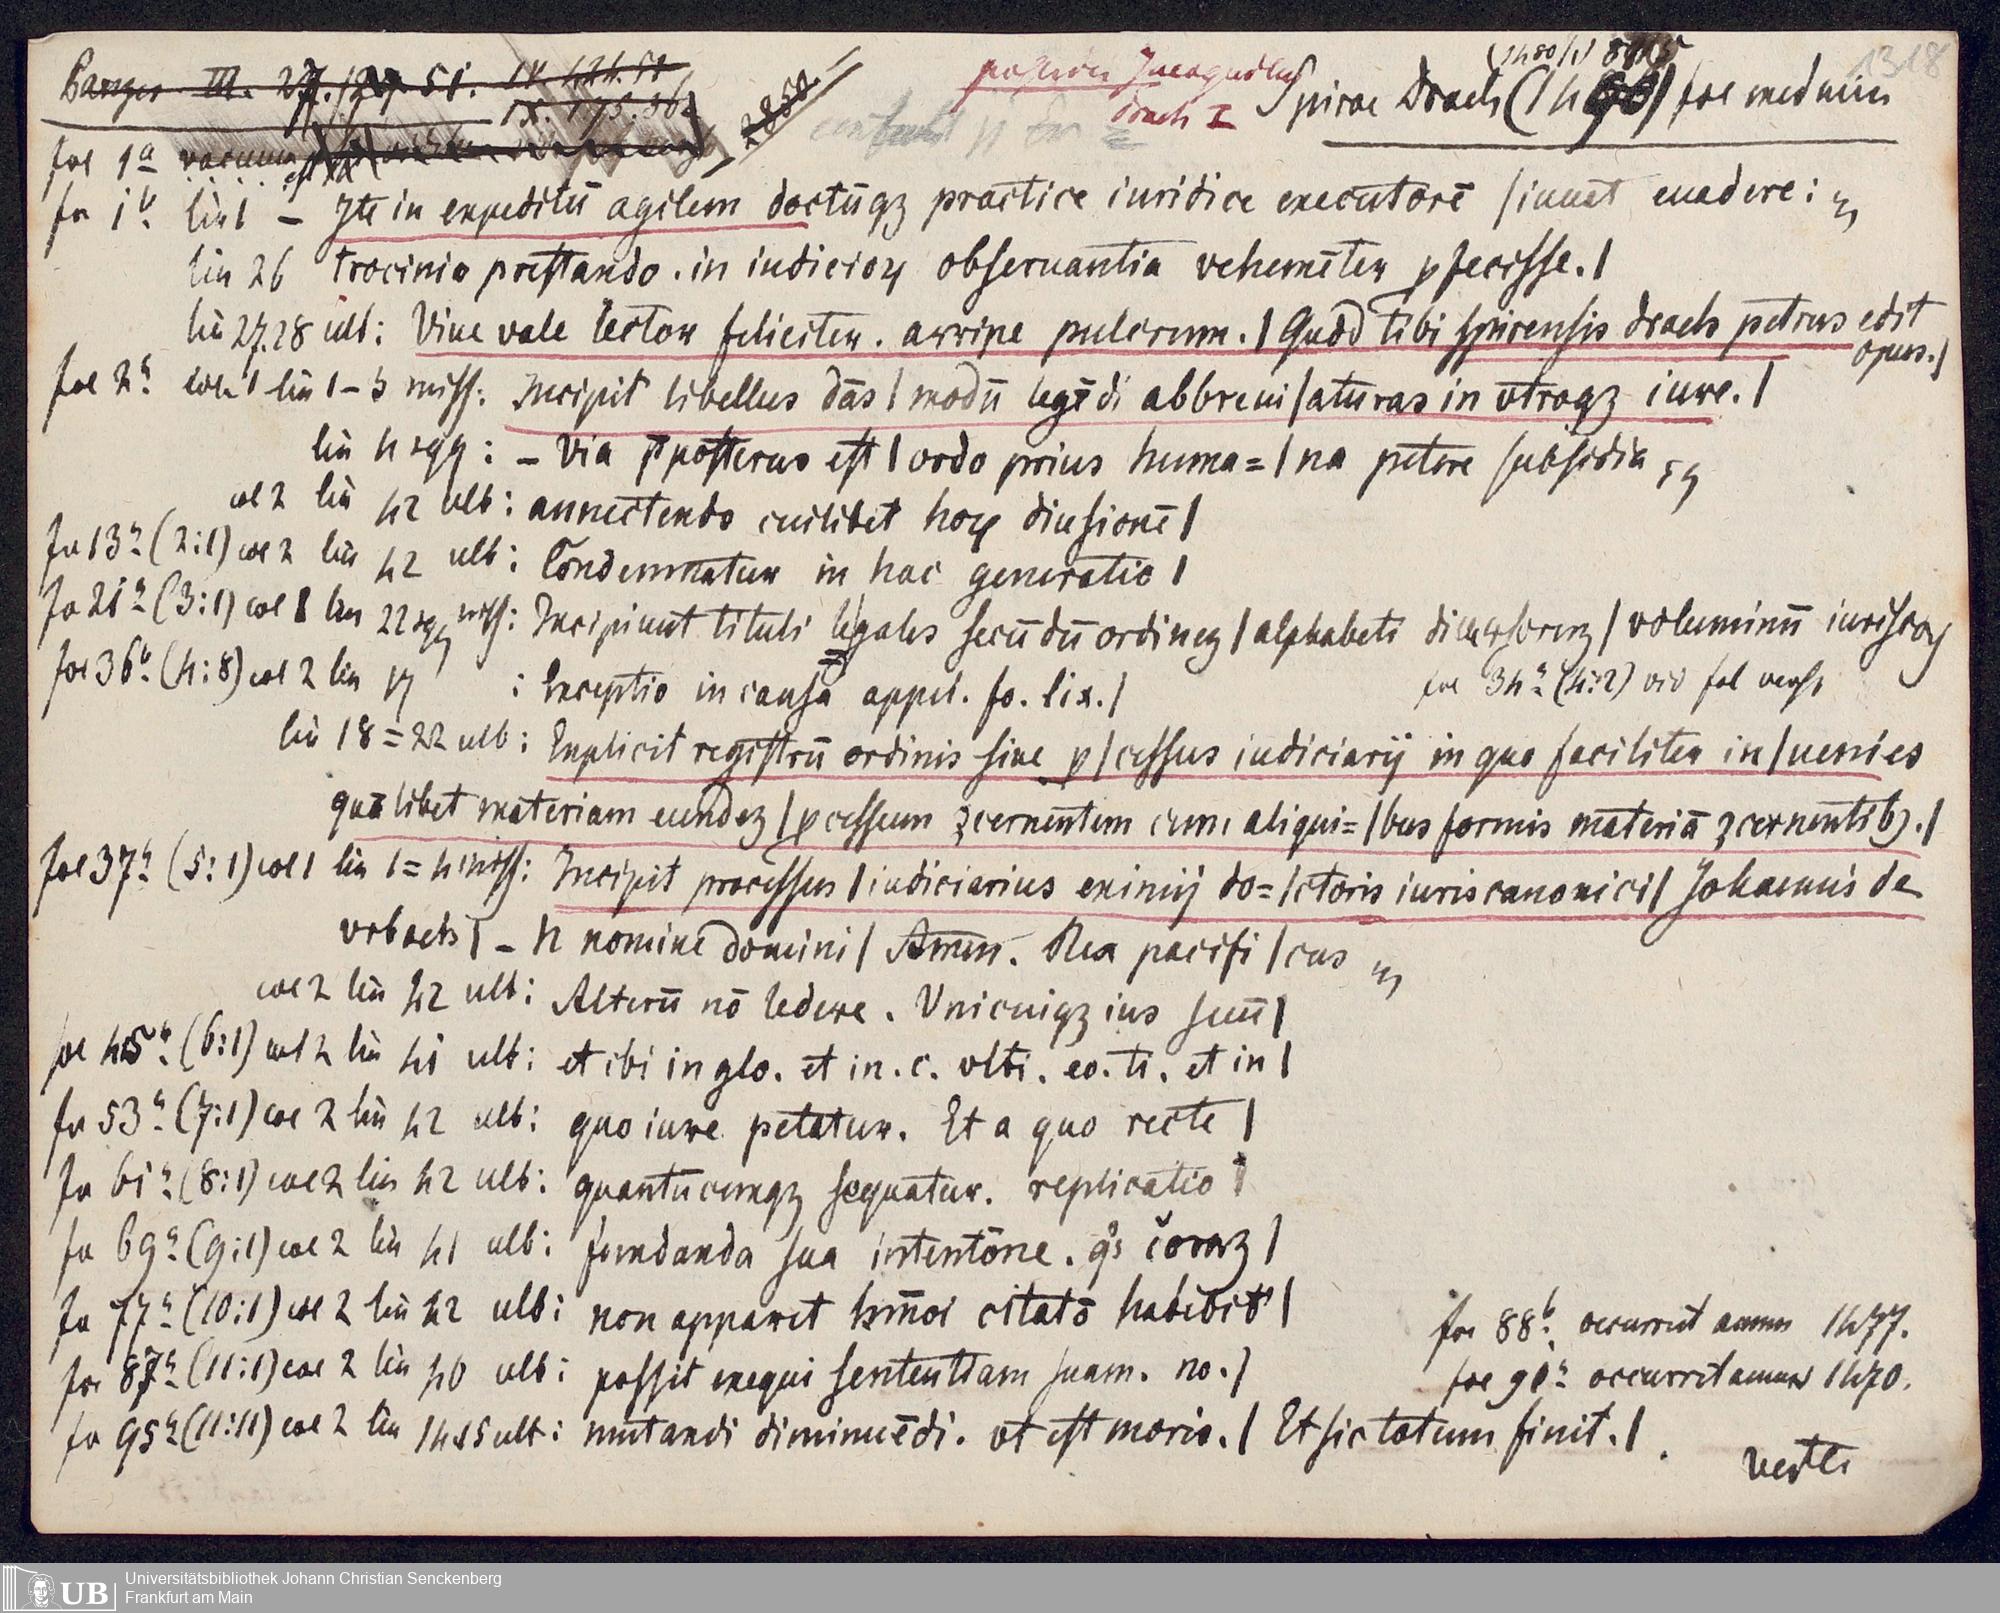 Panzer III. 27. 51. IV 424.51
IX. 195.36
1318
Drach I
Spirae Drach (1480) fol medium
fol 1ª vacuum
fo 1ᵇ. lin 1 — Ite in expeditū agilem doctūqꝫ practice iuridice executorē / iuuat euadere:
lin 26 trocinio prestando. in iudicioꝝ obseruantia vehemēter ꝓfecisse. |
lin 27.28 ult: Viue vale lector feliciter. arripe pulcrum. | Quod tibi spirensis drach petrus edit
opus. |
fol 2ª col 1 lin 1–3 miss: Incipit libellus dās | modū legēdi abbreui/aturas in vtroqꝫ iure. |
lin 4 sqq: – Via p̄posterus est | ordo prius huma= | na petere subsidia
col 2 lin 42 ult: annectendo cuilibet hoꝝ diusionē |
fo 13ª (2:1) col 2 lin 42 ult: Condemnatur in hac generatio |
fo 21ª (3:1) col 1 lin 22 sqq miss: Incipiunt tituli legales secūdū ordineꝫ | alphabeti diuersoruꝫ | voluminū iuriscoꝝ
fol 36ᵇ. (4:8) col 2 lin 17 : Exceptio in causa appel. fo. lix. |
fol 34ª (4:2) vid fol vers
lin 18=22 ult: Explicit registrū ordinis siue ꝓ/cessus iudiciarij in quo faciliter in/uenies
quālibet materiam eundeꝫ | ꝓcessum ꝯcernentem cum aliqui= | bus formis materiā ꝯcernentibꝫ. |
fol 37ª (5:1) col 1 lin 1=4 miss: Incipit processus | iudiciarius eximij do= | ctoris iuris canonici | Johannis de
vrbach | – N nomine domini | Amen. Rex pacifi | cus
col 2 lin 42 ult: Alterū nō ledere. Vnicuiqꝫ ius suū |
fol 45ª (6:1) col 2 lin 41 ult: et ibi in glo. et in. c. vlti. eo. ti. et in |
fo 53ª (7:1) col 2 lin 42 ult: quo iure petatur. Et a quo recte |
fo 61ª (8:1) col 2 lin 42 ult: quantūcumqꝫ sequatur. replicatio |
fo 69ª (9:1) col 2 lin 41 ult: fundanda sua intentōne.
fo 77ª (10:1) col 2 lin 42 ult: non apparet hm̄oi citatō habebit |
fol 88ᵇ. occurrit annus 1477.
fol 87ª (11:1) col 2 lin 40 ult: possit exequi sententiam suam. no. |
fol 91ª occurrit annus 1470.
fo 95ª (11:11) col 2 lin 14.15 ult: mutandi diminuēdi. vt est moris. | Et sic totum finit. |
verte
UB Universitätsbibliothek Johann Christian Senckenberg
Frankfurt am Main